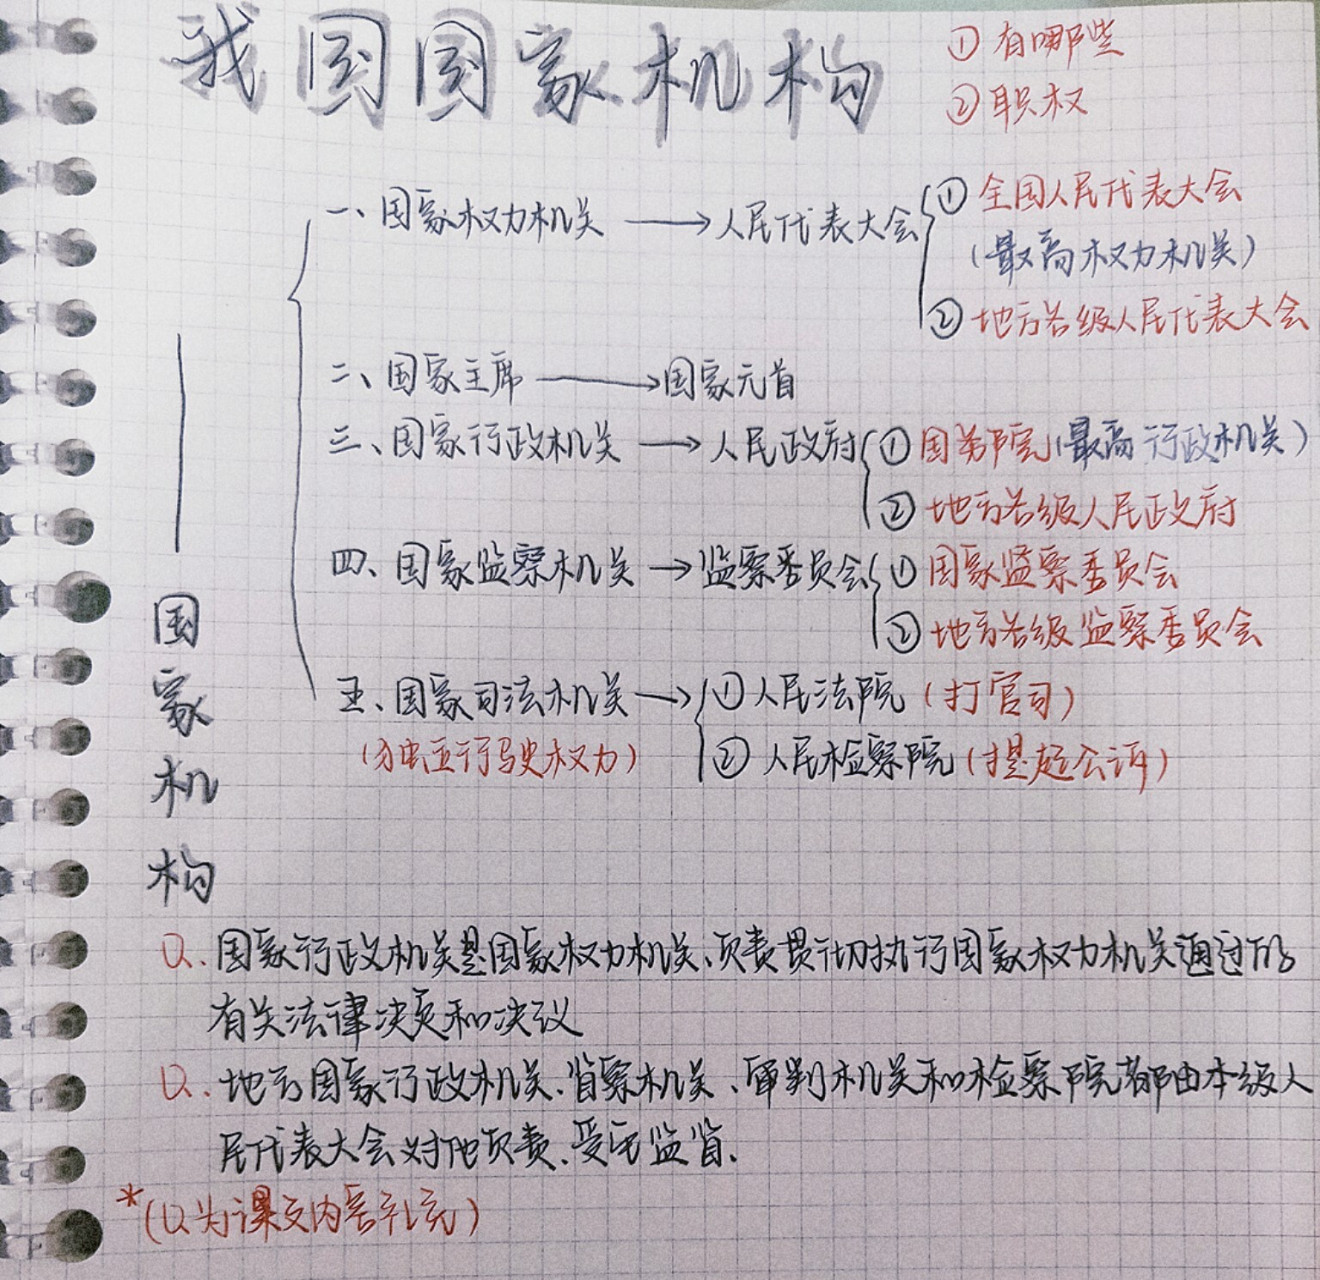 我国国家机构
①有哪些
②职权
一、国家权力机关→人民代表大会
①全国人民代表大会
(最高权力机关)
②地方各级人民代表大会
二、国家主席→国家元首
三、国家行政机关→人民政府
①国务院(最高行政机关)
②地方各级人民政府
四、国家监察机关→监察委员会
①国家监察委员会
②地方各级监察委员会
五、国家司法机关→①人民法院(打官司)
(独立行驶史权力)
②人民检察院(提起公诉)
国家机构
Q.国家行政机关是国家权力机关、负责贯彻执行国家权力机关通过的
有关法律决定和决议
Q.地方国家行政机关、监察机关、审判机关和检察院都由本级人
民代表大会对他负责、受它监督.
*(Q为课文内容补充)